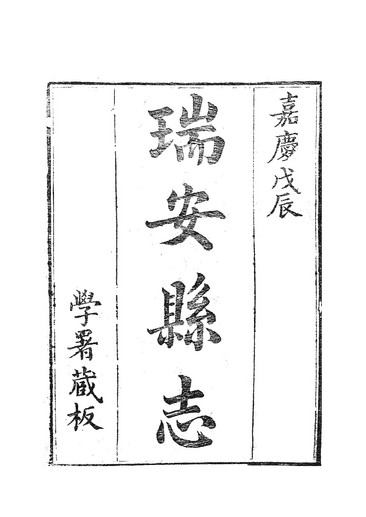 嘉慶戊辰
瑞安縣志
學署藏板